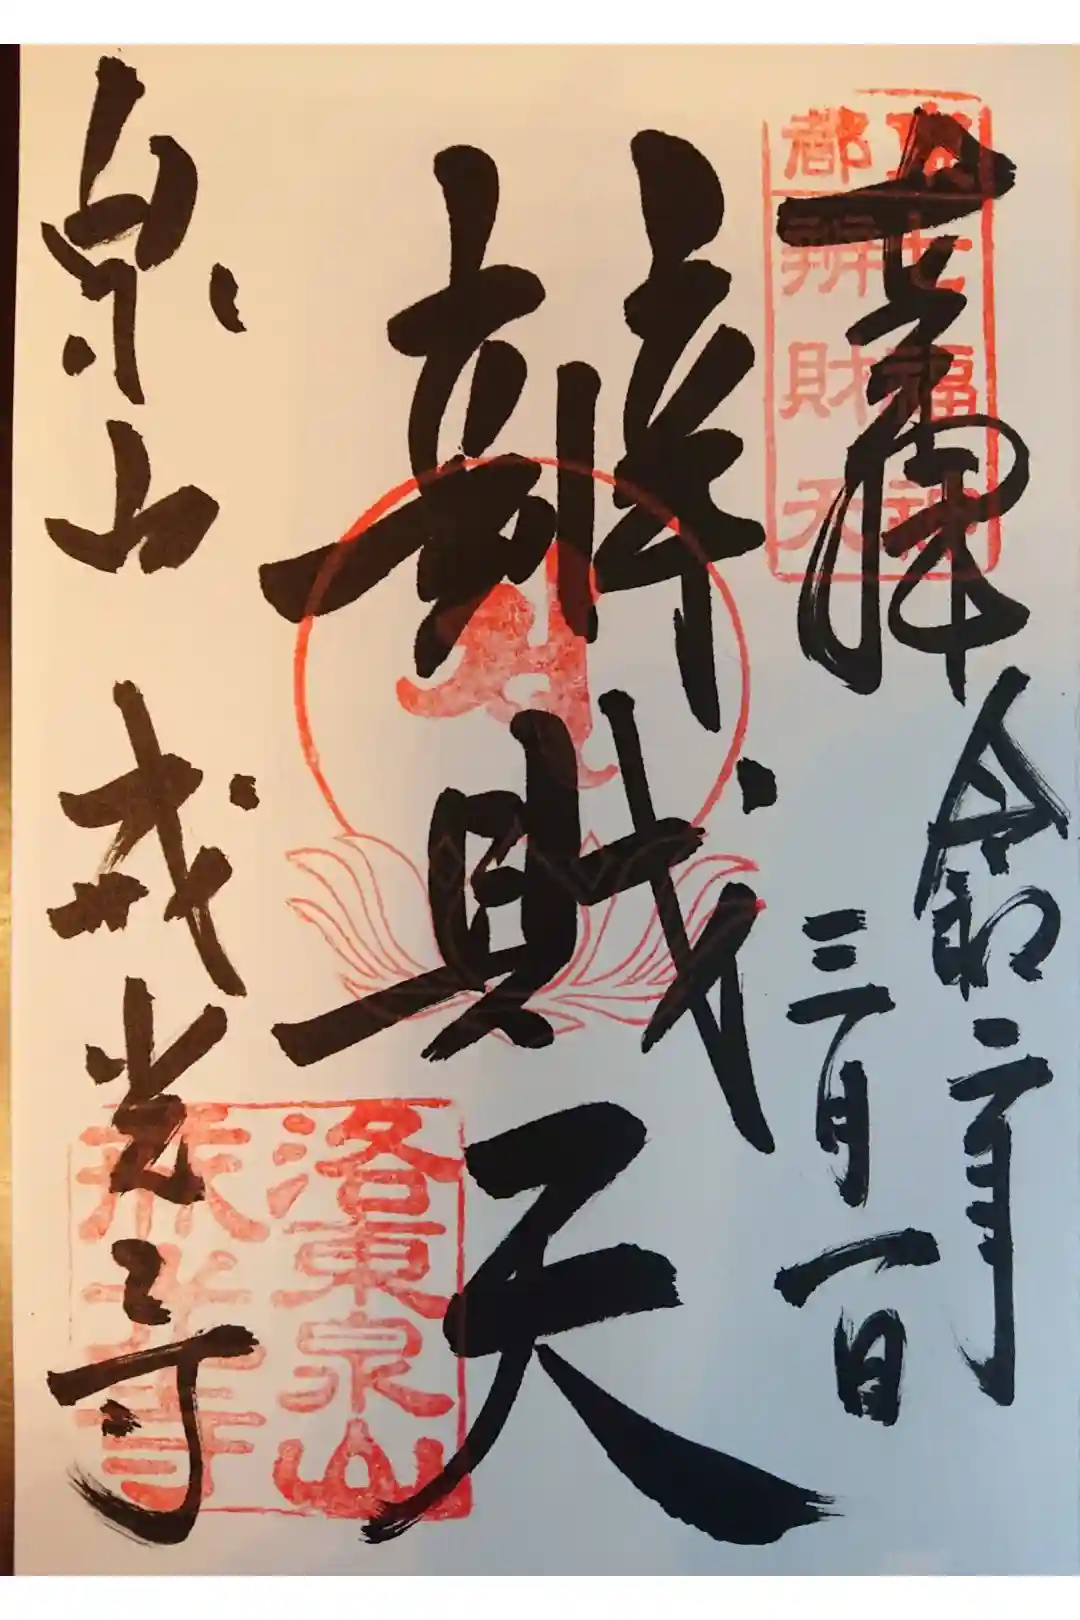 京都
七福神
辨財天
奉拝
令和二年
三月一日
辨戝天
泉山 戒光寺
洛東泉山
戒光寺